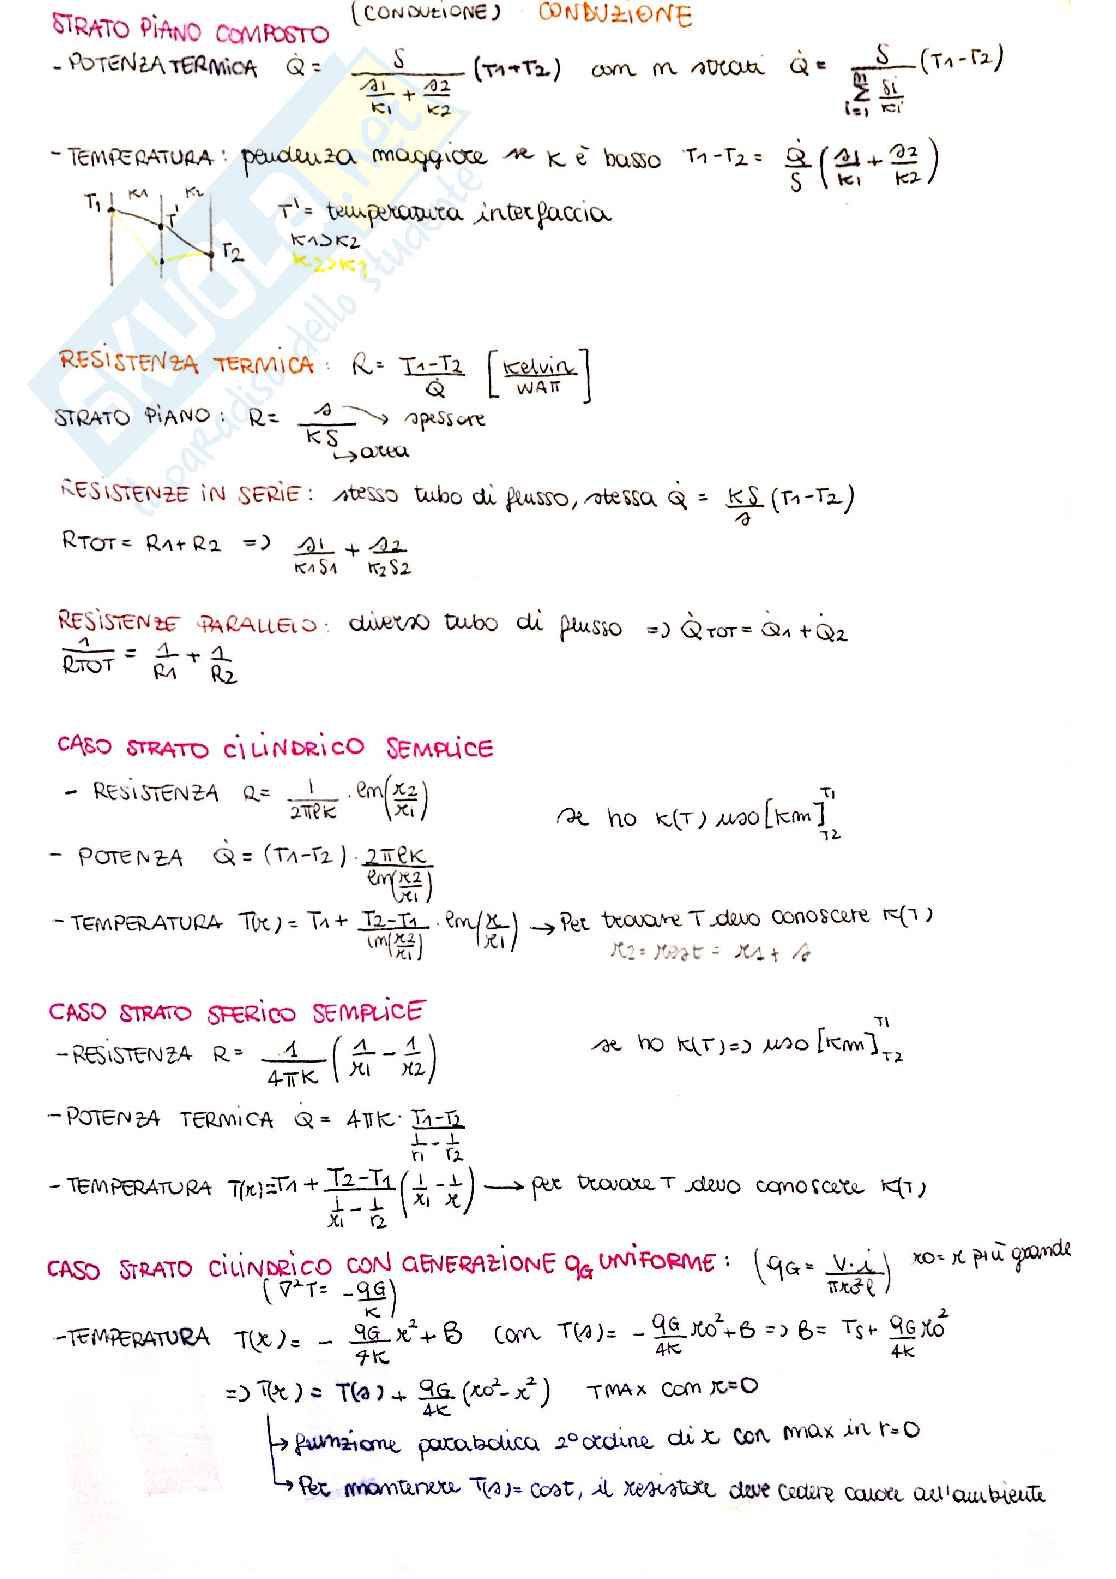 (CONDUZIONE) CONDUZIONE
STRATO PIANO COMPOSTO
- POTENZA TERMICA Q̇ = S / (s1/k1 + s2/k2) (T1+T2) con n strati Q̇ = S / (Σ_{i=1}^{n} si/ki) (T1-T2)
- TEMPERATURA: pendenza maggiore se K è basso T1-T2 = Q̇/S (s1/k1 + s2/k2)
T1 K1 K2 T' T2
T' = temperatura interfaccia
K1>K2
K2>K1
RESISTENZA TERMICA: R = (T1-T2)/Q̇ [Kelvin/WATT]
STRATO PIANO: R = s/(KS) → spessore
↳ area
RESISTENZE IN SERIE: stesso tubo di flusso, stessa Q̇ = KS/s (T1-T2)
RTOT = R1+R2 => s1/(K1S1) + s2/(K2S2)
RESISTENZE PARALLELO: diverso tubo di flusso => Q̇TOT = Q̇1 + Q̇2
1/RTOT = 1/R1 + 1/R2
CASO STRATO CILINDRICO SEMPLICE
- RESISTENZA R = 1/(2πlK) · ln(r2/r1)
se ho K(T) uso [Km]_{T2}^{T1}
- POTENZA Q̇ = (T1-T2) · 2πlK / ln(r2/r1)
- TEMPERATURA T(r) = T1 + (T2-T1)/ln(r2/r1) · ln(r/r1) → Per trovare T devo conoscere K(T)
r2 = rest = r1 + s
CASO STRATO SFERICO SEMPLICE
- RESISTENZA R = 1/(4πK) (1/r1 - 1/r2)
se ho K(T) => uso [Km]_{T2}^{T1}
- POTENZA TERMICA Q̇ = 4πK · (T1-T2)/(1/r1 - 1/r2)
- TEMPERATURA T(r) = T1 + (T2-T1)/(1/r1 - 1/r2) (1/r1 - 1/r) → per trovare T devo conoscere K(T)
CASO STRATO CILINDRICO CON GENERAZIONE qG UNIFORME: (qG = V·i/(πr0²l)) r0 = r più grande
(∇²T = -qG/K)
- TEMPERATURA T(r) = - qG/4K r² + B con T(s) = - qG/4K r0² + B => B = Ts + qG/4K r0²
=> T(r) = T(s) + qG/4K (r0² - r²) TMAX con r=0
↳ funzione parabolica 2° ordine di r con max in r=0
↳ Per mantenere T(s) = cost, il resistore deve cedere calore all'ambiente
SKUOLA.net
il paradiso dello studente